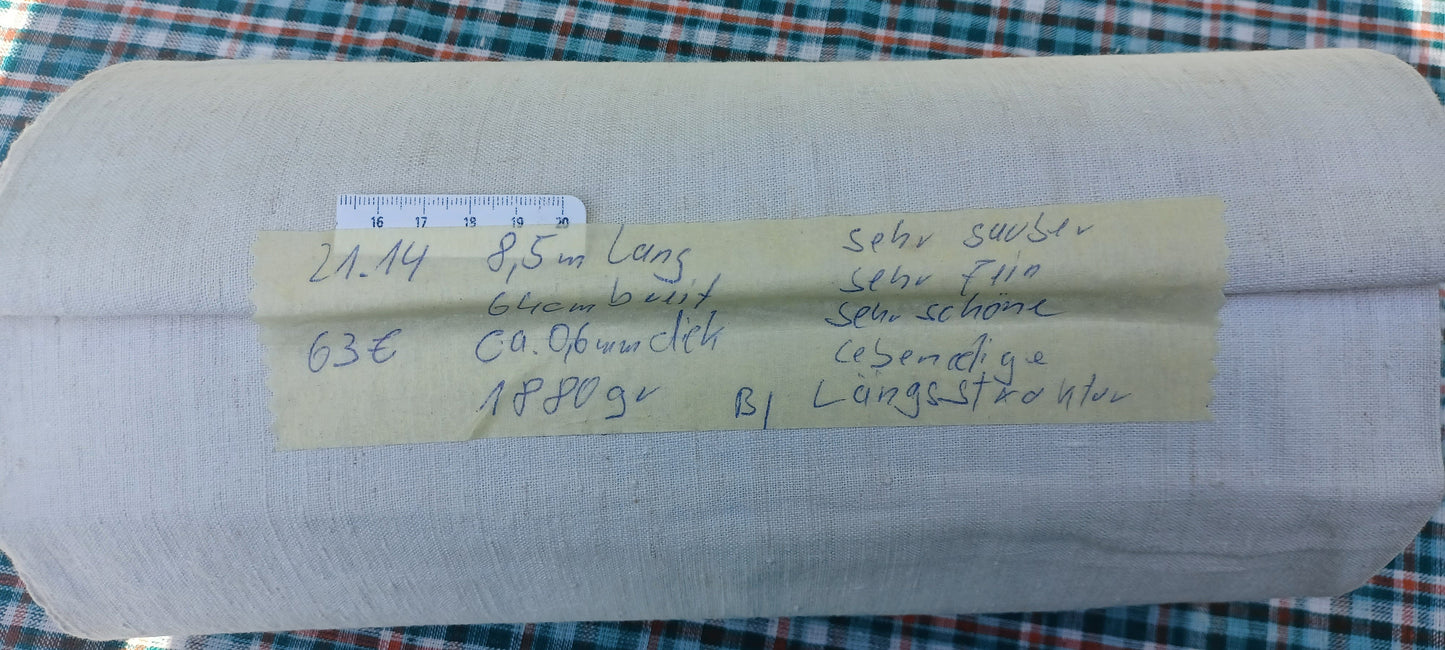 16 17 18 19 20
21.14 8,5m lang sehr sauber
64cm breit sehr fein
63€ ca. 0,6mm dick sehr schöne
lebendige
1880gr B/ Längsstruktur